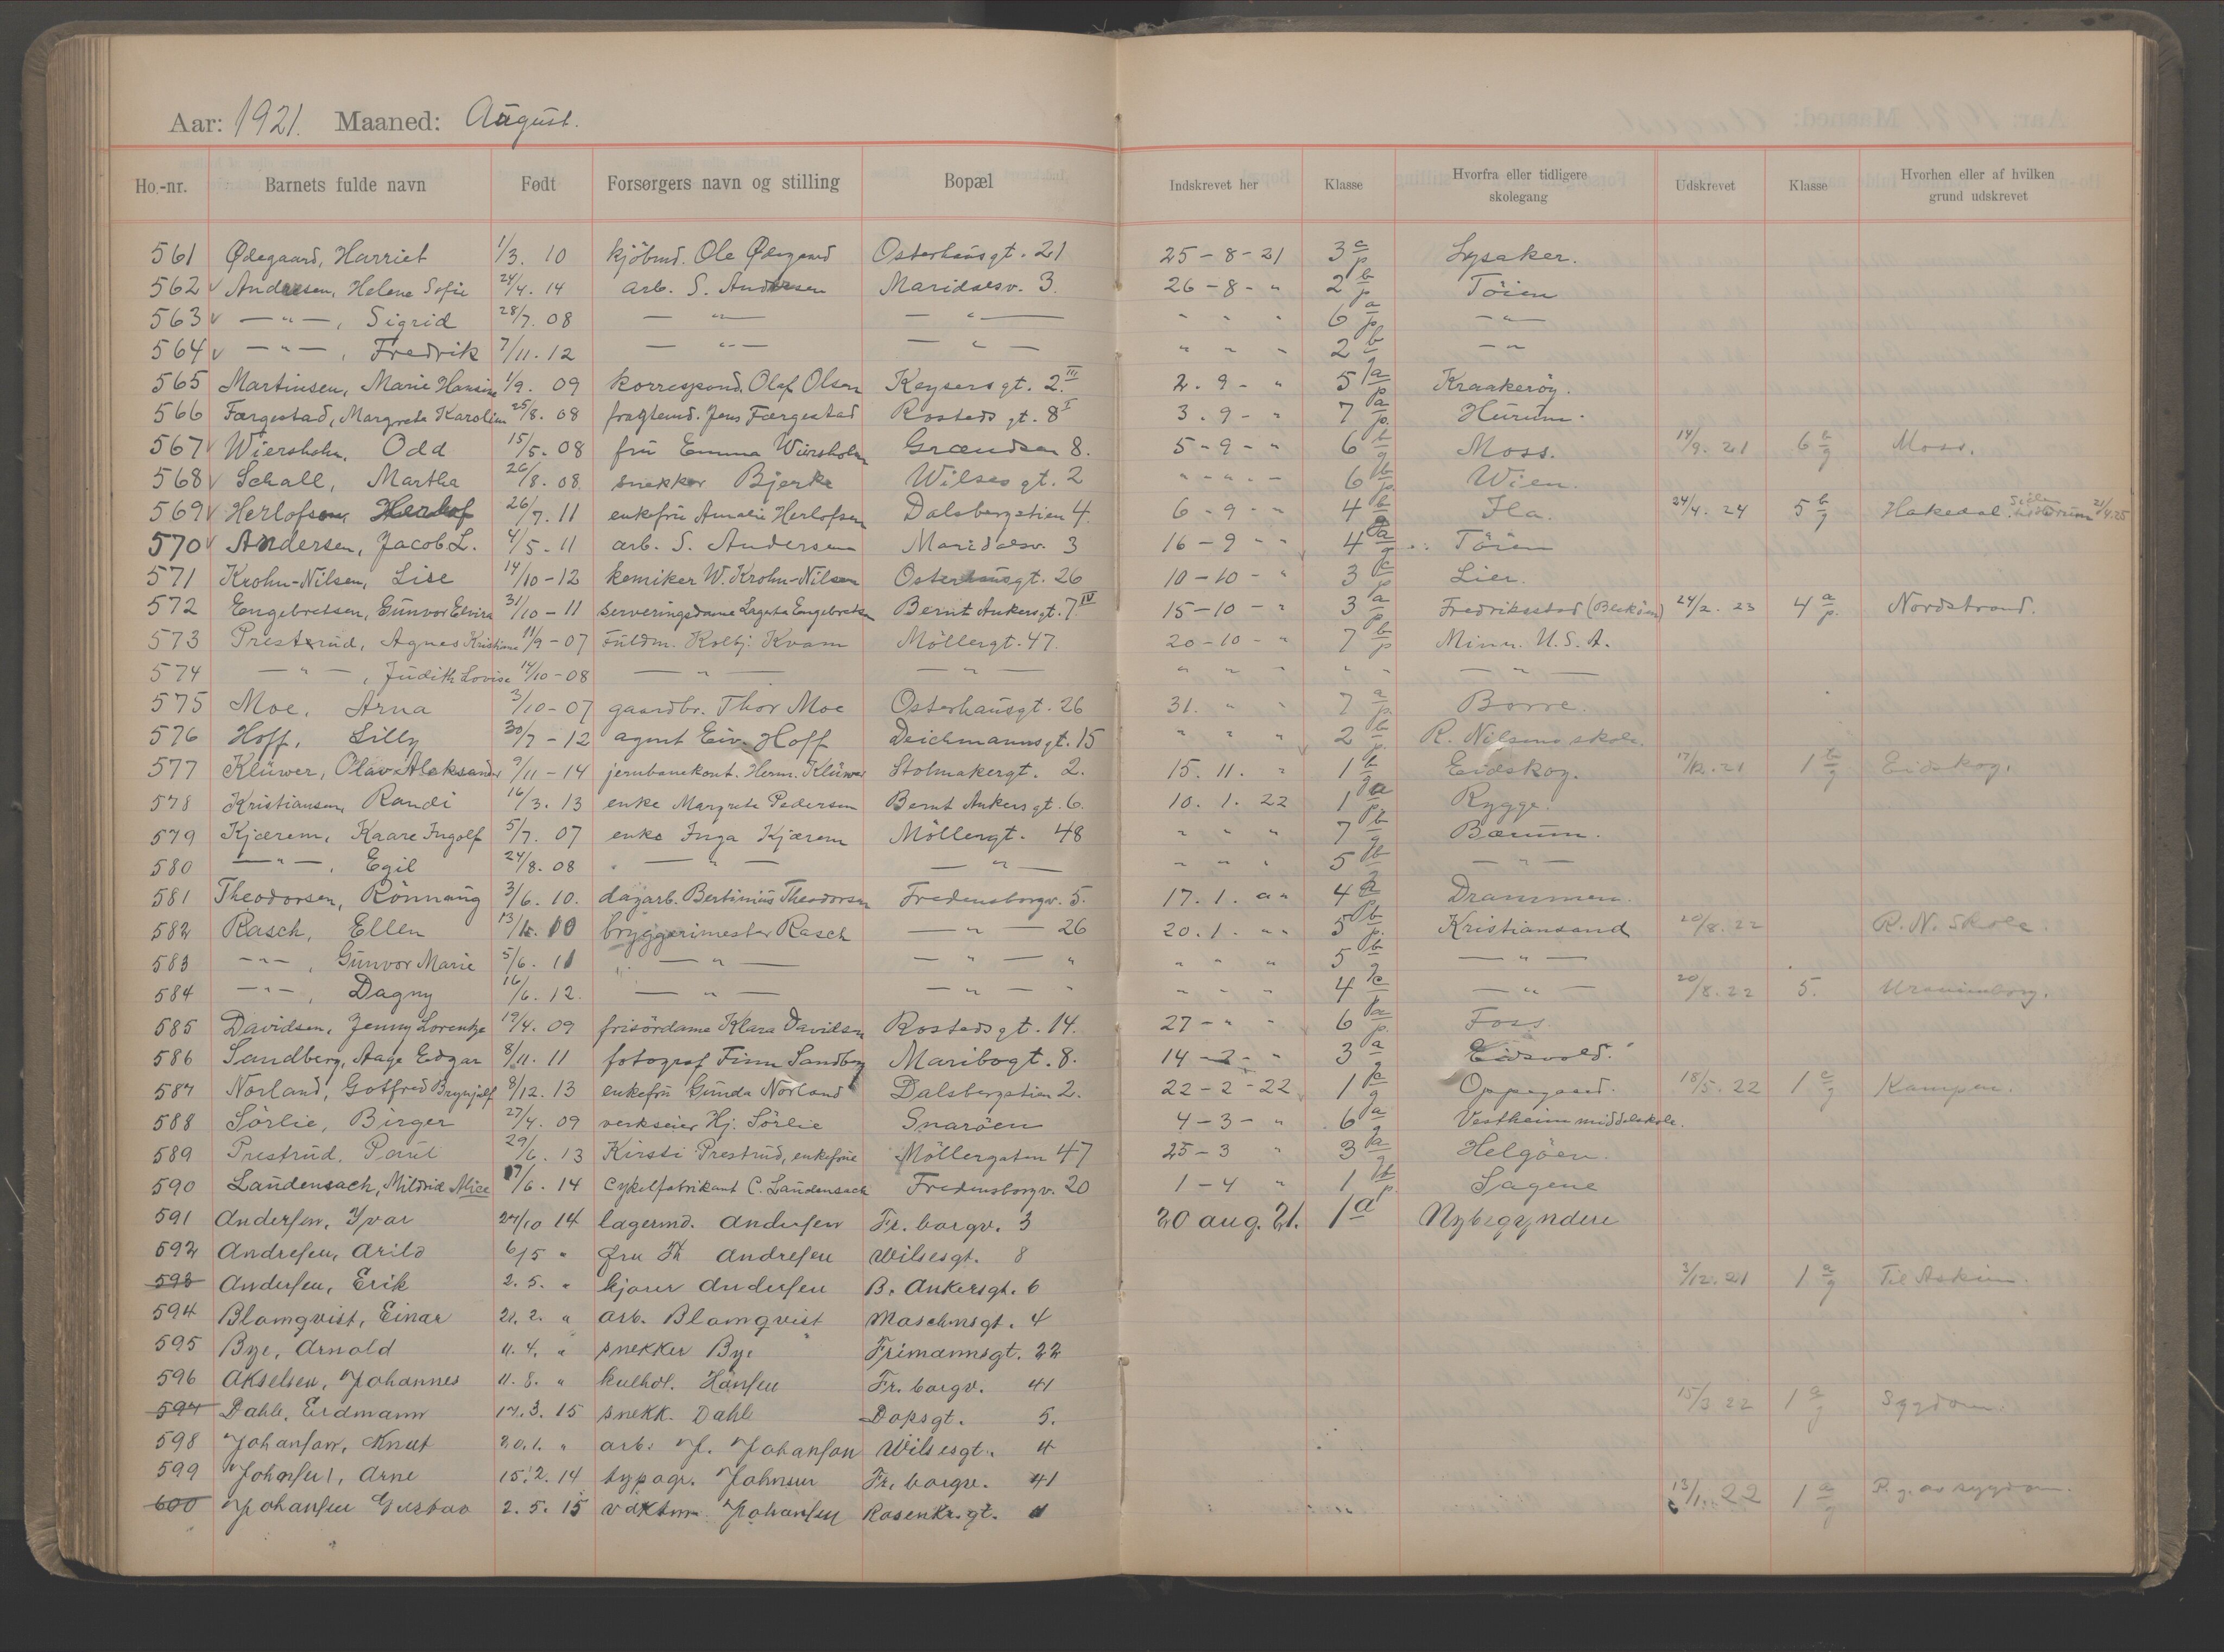 Aar: 1921. Maaned: August.
Ho.-nr. Barnets fulde navn Født Forsørgers navn og stilling Bopæl Indskrevet her Klasse Hvorfra eller tidligere skolegang Udskrevet Klasse Hvorhen eller af hvilken grund udskrevet
561 Ødegaard, Harriet 1/3. 10 kjöbmd. Ole Ødegaard Osterhausgt. 21 25-8-21 3 c/p Lysaker.
562 v Andresen, Helene Sofie 24/4. 14 arb. S. Andersen Maridalsv. 3. 26-8- " 2 b/p Töien
563 v — " —, Sigrid 28/7. 08 — " — — " — " " " 6 a/p — " —
564 v — " —, Fredrik 7/11. 12 — " — — " — " " " 2 b/g — " —
565 Martinsen, Marie Hansine 1/9. 09 korrespond. Olaf Olsen Keysersgt. 2 III 2. 9 - " 5 a/p Kraakeröy.
566 Færgestad, Margrete Karoline 25/8. 08 Jens Færgestad Rosteds gt. 8 I 3. 9 - " 7 a/p. Hurum.
567 v Wiersholm, Odd 15/5. 08 fru Emma Wiersholm Grændsen 8. 5-9- " 6 b/g Moss. 14/9. 21 6 b/g Moss.
568 v Schall, Martha 26/8. 08. snekker Bjerke Wilses gt. 2 " - " - " 6 b/p. Wien.
569 v Herlofsen, Herlof 26/7. 11 enkefru Amalie Herlofsen Dalsbergstien 4. 6-9- " 4 b/g Ila. 24/4. 24 5 b/g Hakedal. 21/4.25
570 v Andersen, Jacob L. 4/5-11 arb. S. Andersen Maridalsv. 3 16-9 - " 4 a/g Töien
571 Krohn-Nilsen, Lise 14/10-12 kemiker W. Krohn-Nilsen Osterhausgt. 26 10-10 - " 3 c/p Lier.
572 Engebretsen, Gunvor Elvira 31/10-11 serveringsdame Lagerta Engebretsen Bernt Ankersgt. 7 IV 15-10 - " 3 a/p Fredriksstad 24/2. 23 4 a/p. Nordstrand.
573 Presterud, Agnes Kristiane 11/9-07 Fuldm. Kolbj. Kvam Möllergt. 47. 20-10- " 7 b/p Minn. U.S.A.
574 — " —, Judith Lovise 14/10-08 — " — — " — " " " " " — " —
575 Moe, Arna 3/10-07 gaardbr. Thor Moe Osterhausgt. 26 31. " " 7 a/p. Borre.
576 Hoff, Lilly 30/7-12 agent Eiv. Hoff Deichmannsgt. 15 " " " 2 b/p. R. Nilsens skole.
577 Klüwer, Olav Aleksander 9/11-14 jernbanekont. Herm. Klüwer Stolmakergt. 2. 15. 11. " 1 b/g Eidskog. 17/12. 21 1 b/g Eidskog.
578 Kristiansen, Randi 16/3. 13 enke Margrete Pedersen Bernt Ankersgt. 6. 10. 1. 22 1 a/p Rygge.
579 Kjærem, Kaare Ingolf 5/7. 07 enke Inga Kjærem Möllergt. 48 " " " 7 b/g Bærum.
580 — " —, Egil 24/8. 08 — " — — " — " " " 5 b/g — " —
581 Theodorsen, Rönnaug 3/6. 10. dagarb. Bertinius Theodorsen Fredensborgv. 5. 17. 1. " " 4 a Drammen.
582 Rasch, Ellen 10 bryggerimester Rasch — " — 26 20. 1. " " 5 b/p. Kristiansand 20/8. 22 R. N. Skole.
583 — " —, Gunvor Marie 5/6. 11 — " — — " — " " " " 5 b — " —
584 — " —, Dagny 16/6. 12. — " — — " — " " " " 4 c — " — 20/8. 22 5. Uranienborg.
585 Davidsen, Jenny Lorentze 19/4. 09 frisördame Klara Davidsen Rostedsgt. 14. 27 - " " 6 a/p. Foss
586 Sandberg, Aage Edgar 8/11. 11 fotograf Finn Sandberg Maribogt. 8. 14-2- " 3 a/g Eidsvold.
587 Norland, Gotfred Brynjulf 8/12. 13 enkefru Gunda Norland Dalsbergstien 2. 22-2-22 1 c/g Oppegaard. 18/5. 22 1 c/g Kampen.
588 Sörlie, Birger 27/4. 09 verkseier Hj. Sörlie Snaröen 4-3- " 6 a/g Vestheim middelskole.
589 Prestrud. Paul 29/6. 13 Kirsti Prestrud, enkefrue Möllergaten 47 25-3 " 3 a/g Helgöen.
590 Laudensack, Mildrid Alice 17/6. 14 Cykelfabrikant C. Laudensack Fredensborgv. 20 1-4 " 1 b/p. Sagene
591 Andersen, Ivar 27/10 14 lagermd. Andersen Fr. borgv. 3 20 aug. 21. 1 a Nybegyndere
592 Andresen, Arild 6/5 " fru Th Andresen Wilsesgt. 8
593 Andersen, Erik 2. 5. " kjører Andersen B. Ankersgt. 6 3/12. 21 1 a/g Til Askim.
594 Blomqvist, Einar 21. 2. " arb. Blomqvist Maschmsgt. 4
595 Bye, Arnold 11. 4. " snekker Bye Frimannsgt. 22
596 Akselsen, Johannes 11. 8. " kulhdl. Hansen Fr. borgv. 41
597 Dahle, Erdmann 17. 3. 15 snekk. Dahle Dopsgt. 5. 15/3 22 1 a/g Sygdom.
598 Johanson, Knut 20. 1. " arb. J. Johanson Wilsesgt. 4
599 Johnsen, Arne 15. 2. 14 typogr. Johnsen Fr. borgv. 41
600 Johansen Gustav 2. 5. 15 vaktm. Johansen Rosenkr. gt. 22 1 a/g P. g. av sygdom.